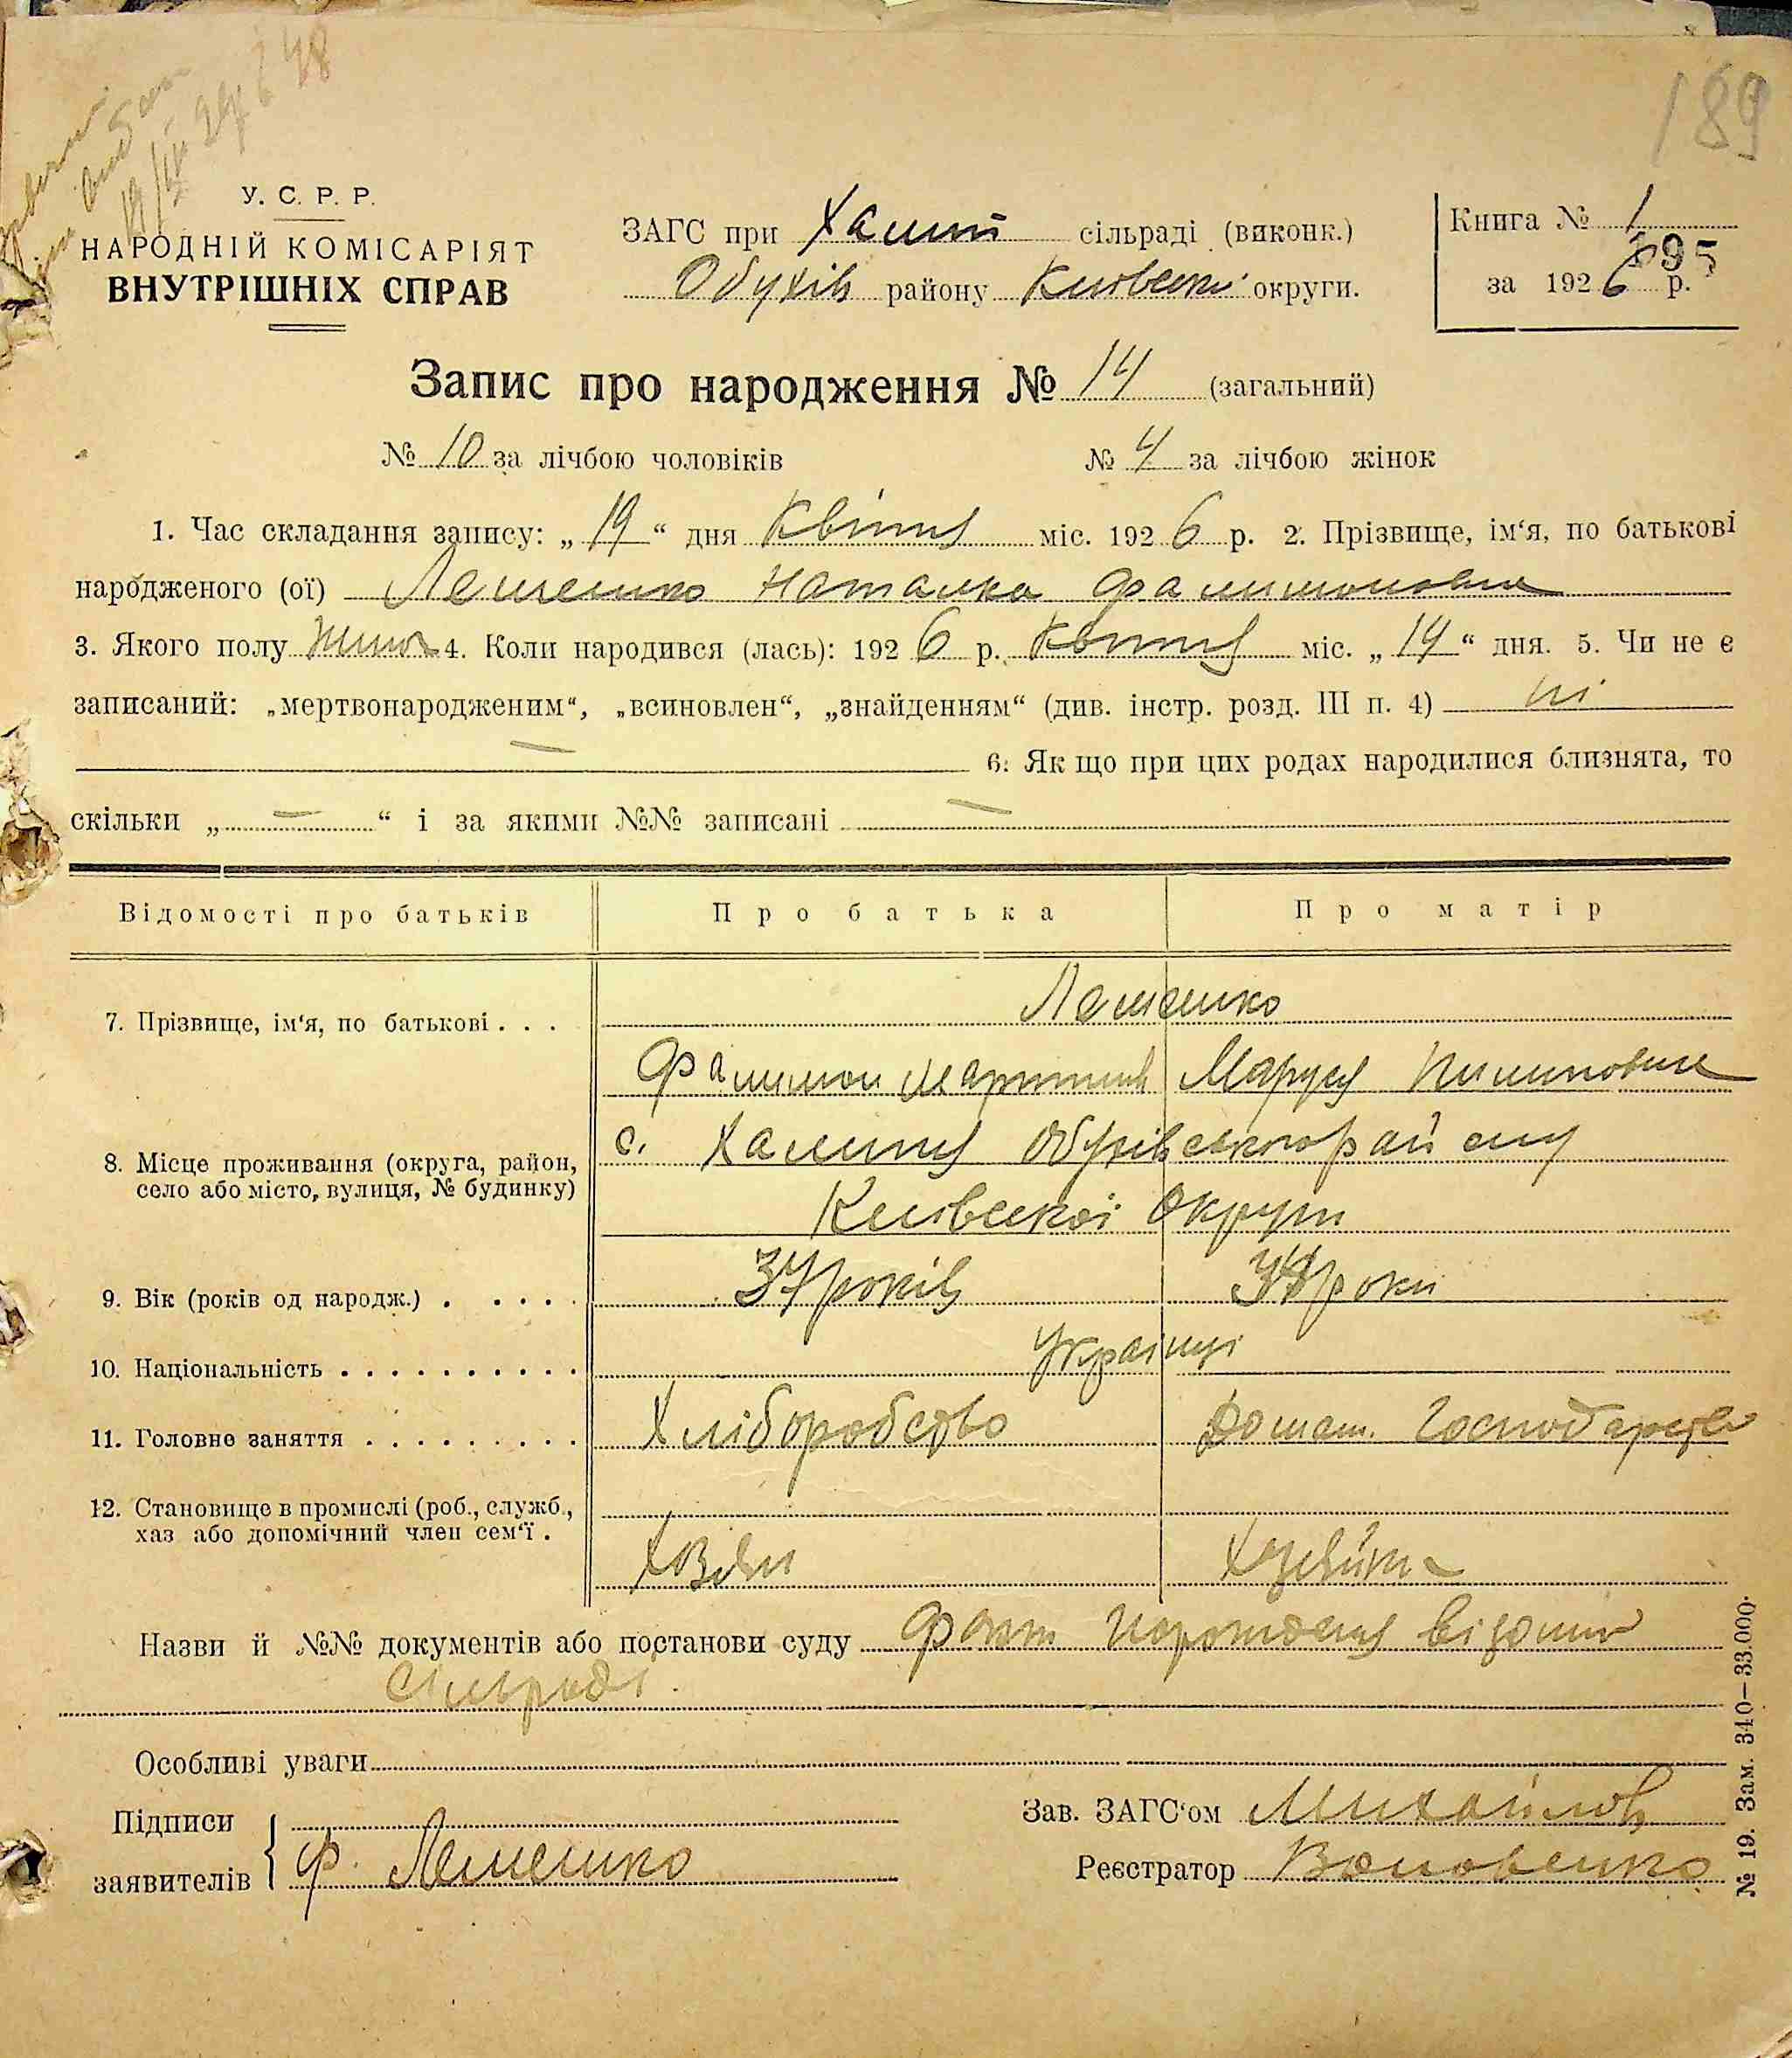 189
У. С. Р. Р.
НАРОДНІЙ КОМІСАРІЯТ
ВНУТРІШНІХ СПРАВ
ЗАГС при Халеп сільраді (виконк.)
Обухів району Київської округи.
Книга № 1
595
за 1926 р.
Запис про народження № 14 (загальний)
№ 10 за лічбою чоловіків № 4 за лічбою жінок
1. Час складання запису: „19“ дня Квітня міс. 1926 р. 2. Прізвище, ім‘я, по батькові
народженого (ої) Лемешко Наталка Филимоновна
3. Якого полу жіноч 4. Коли народився (лась): 1926 р. Квітня міс. „14“ дня. 5. Чи не є
записаний: „мертвонародженим“, „всиновлен“, „знайденням“ (див. інстр. розд. III п. 4) ні
— 6. Як що при цих родах народилися близнята, то
скільки „ — “ і за якими №№ записані —
Відомості про батьків Про батька Про матір
7. Прізвище, ім‘я, по батькові . . . Лемешко
Филимон Мартинів Маруся
8. Місце проживання (округа, район, с. Халепя Обухівського району
село або місто, вулиця, № будинку) Київської Округи
9. Вік (років од народж.) . . . . . 37 років 34 роки
10. Національність . . . . . . . . . . . Українці
11. Головне заняття . . . . . . . . . . Хліборобство Домаш. Господарство
12. Становище в промислі (роб., служб.,
хаз або допомічний член сем‘ї . Хазяін Хазяйка
Назви й №№ документів або постанови суду Факт народження відомий
Сільраді.
Особливі уваги
Підписи
заявителів Ф. Лемешко
Зав. ЗАГС‘ом Михайлов
Реєстратор
№ 19. Зам. 340—33.000.